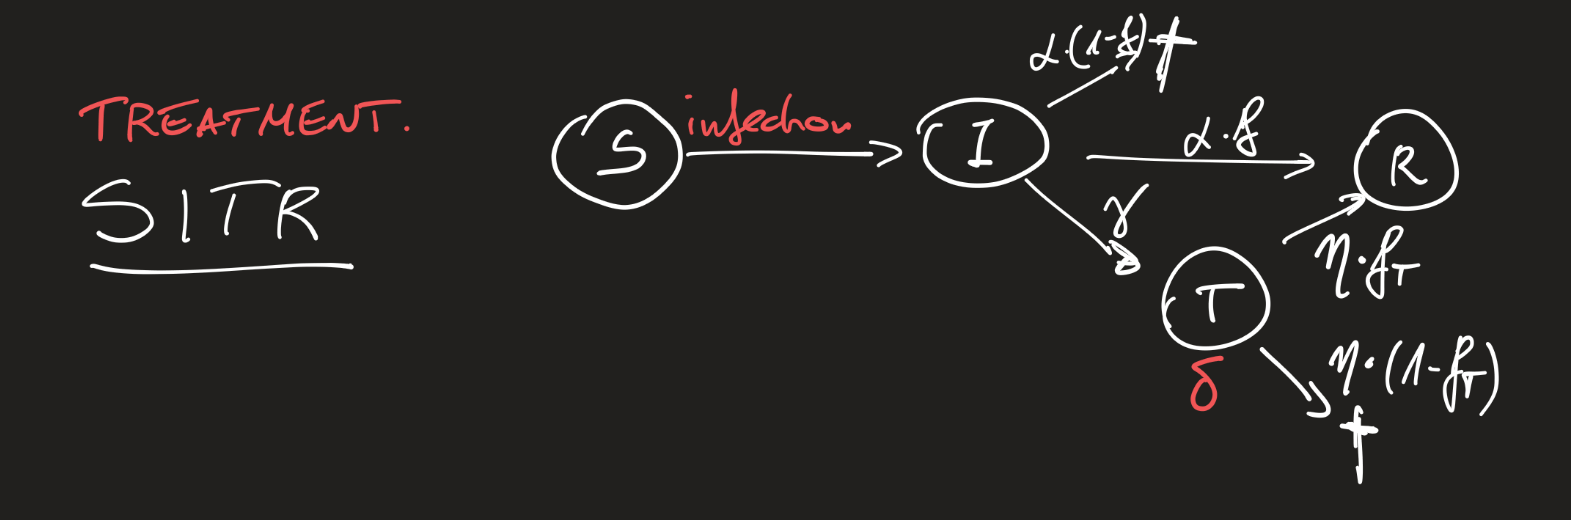 TREATMENT.
SITR
S
infection
I
α·(1-f)
α·f
R
γ
T
δ
η·f_T
η·(1-f_T)